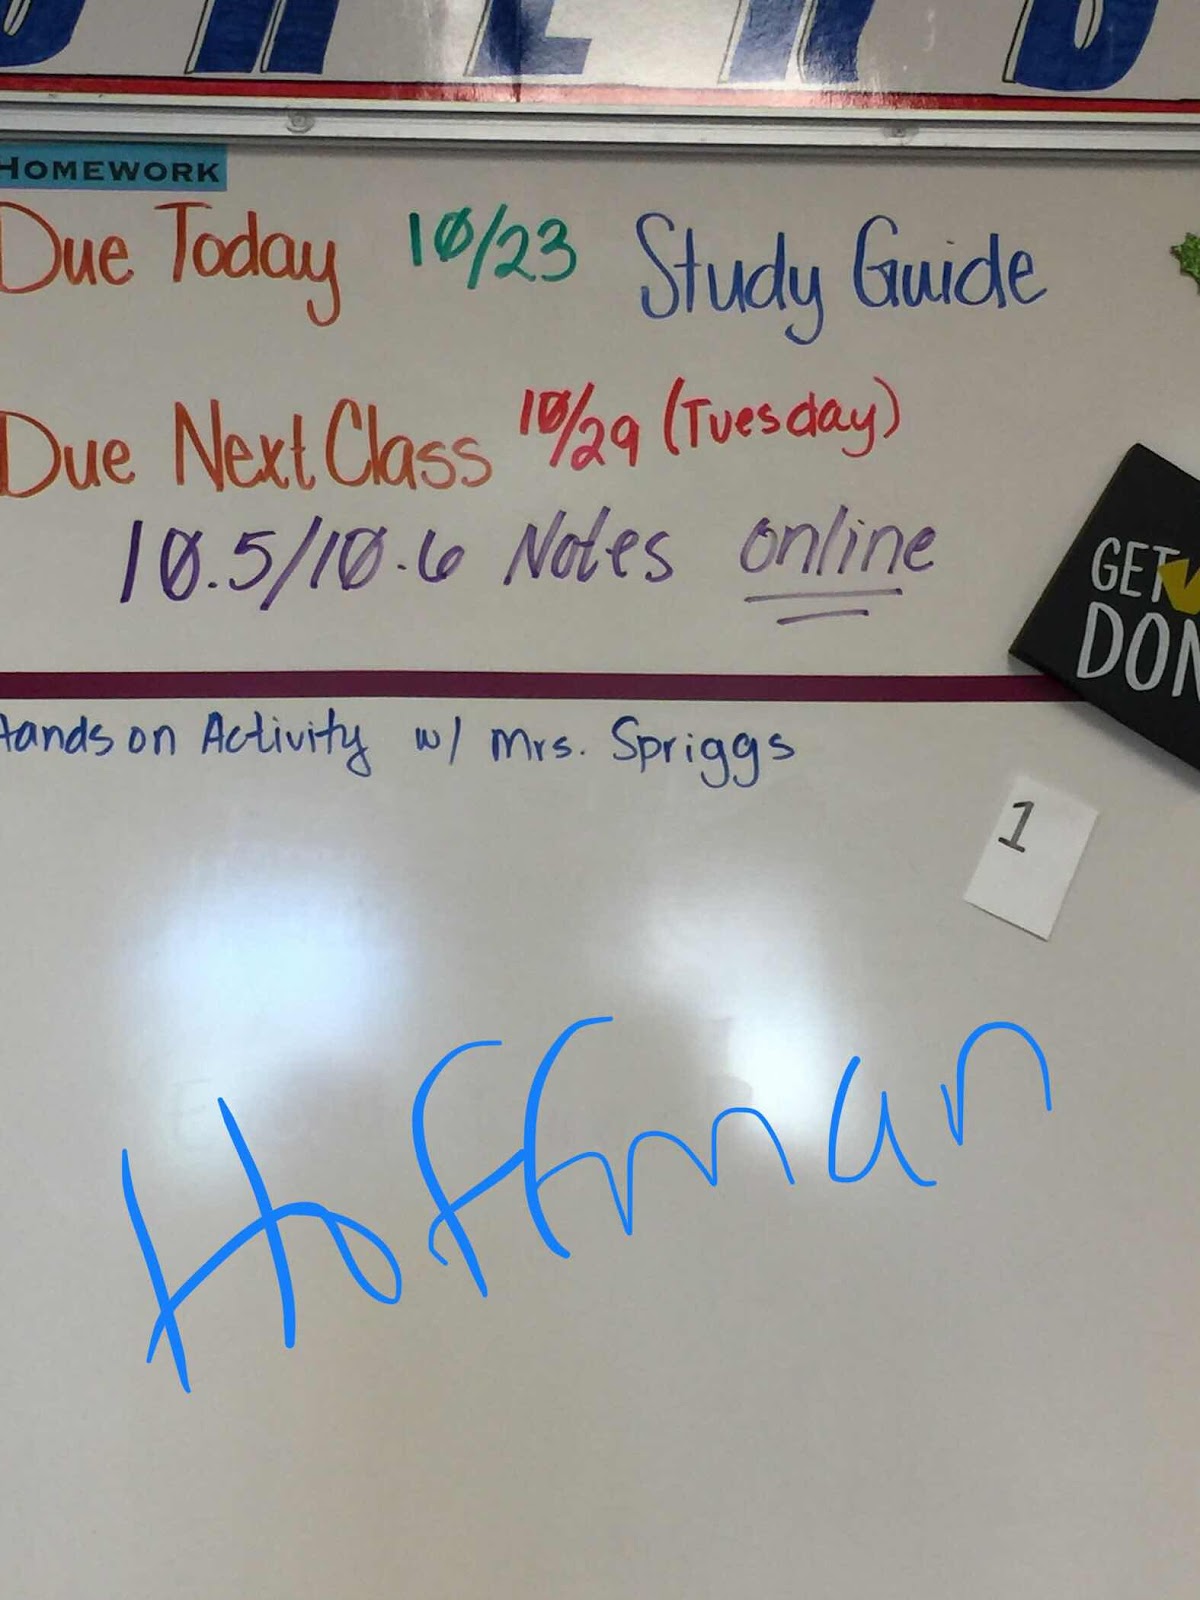 HOMEWORK
Due Today 10/23 Study Guide
Due Next Class 10/29 (Tuesday)
10.5/10.6 Notes online
GET
DON
Hands on Activity w/ Mrs. Spriggs
1
Hoffman